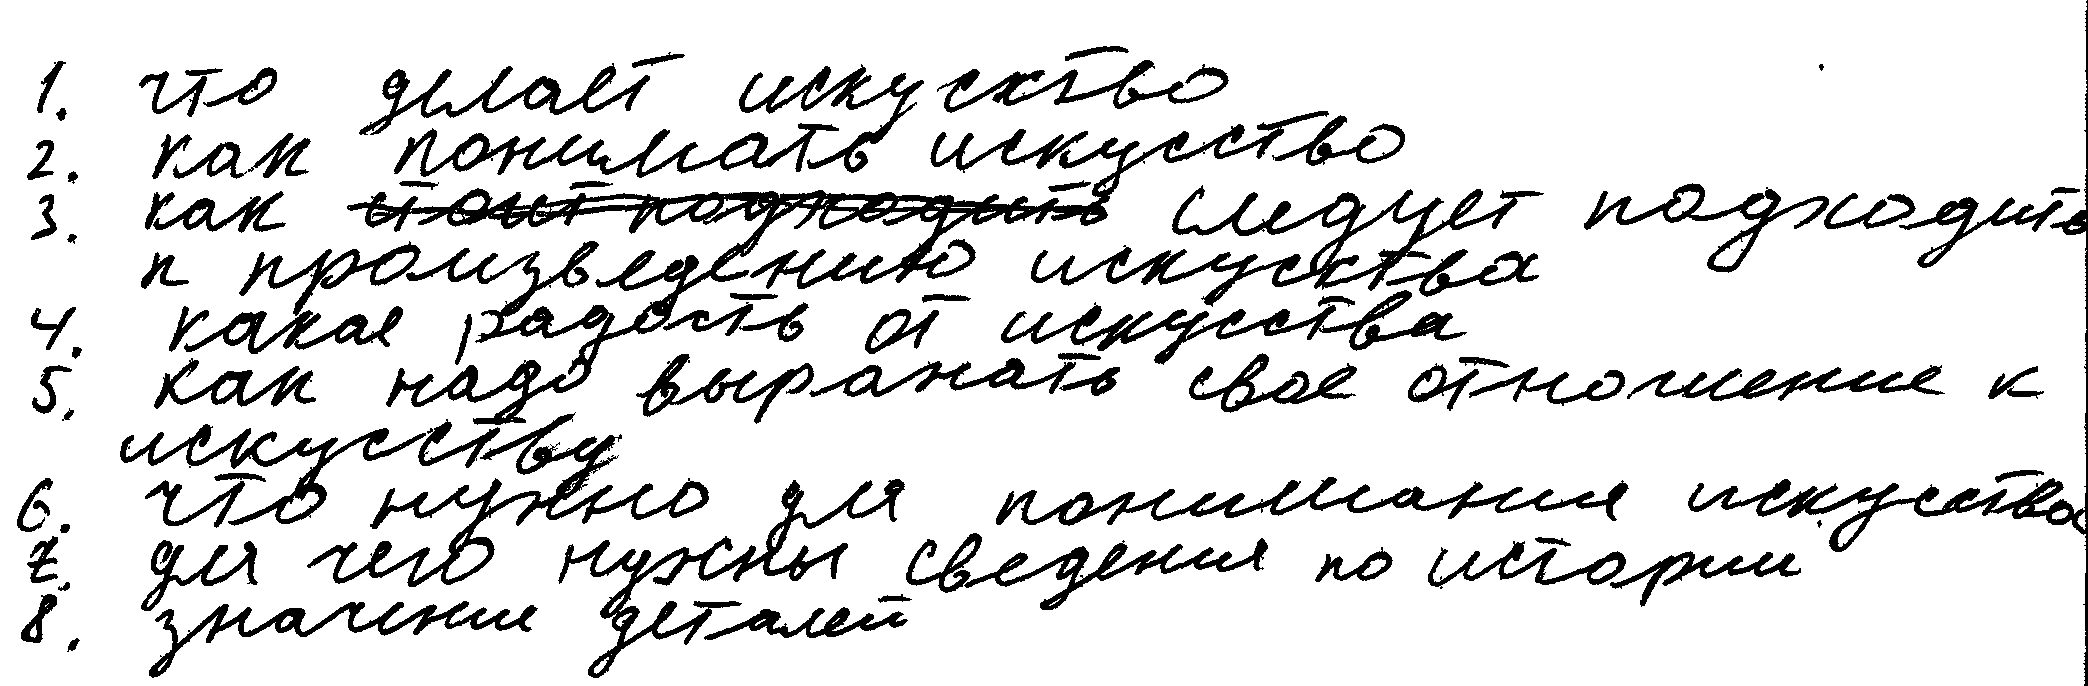 1. что делает искусство
2. как понимать искусство
3. как стоит подходить следует подходить
к произведению искусства
4. какае радость от искусства
5. как надо выражать свое отношение к
искусству
6. что нужно для понимания искусства
7. для чего нужны сведения по истории
8. значение деталей